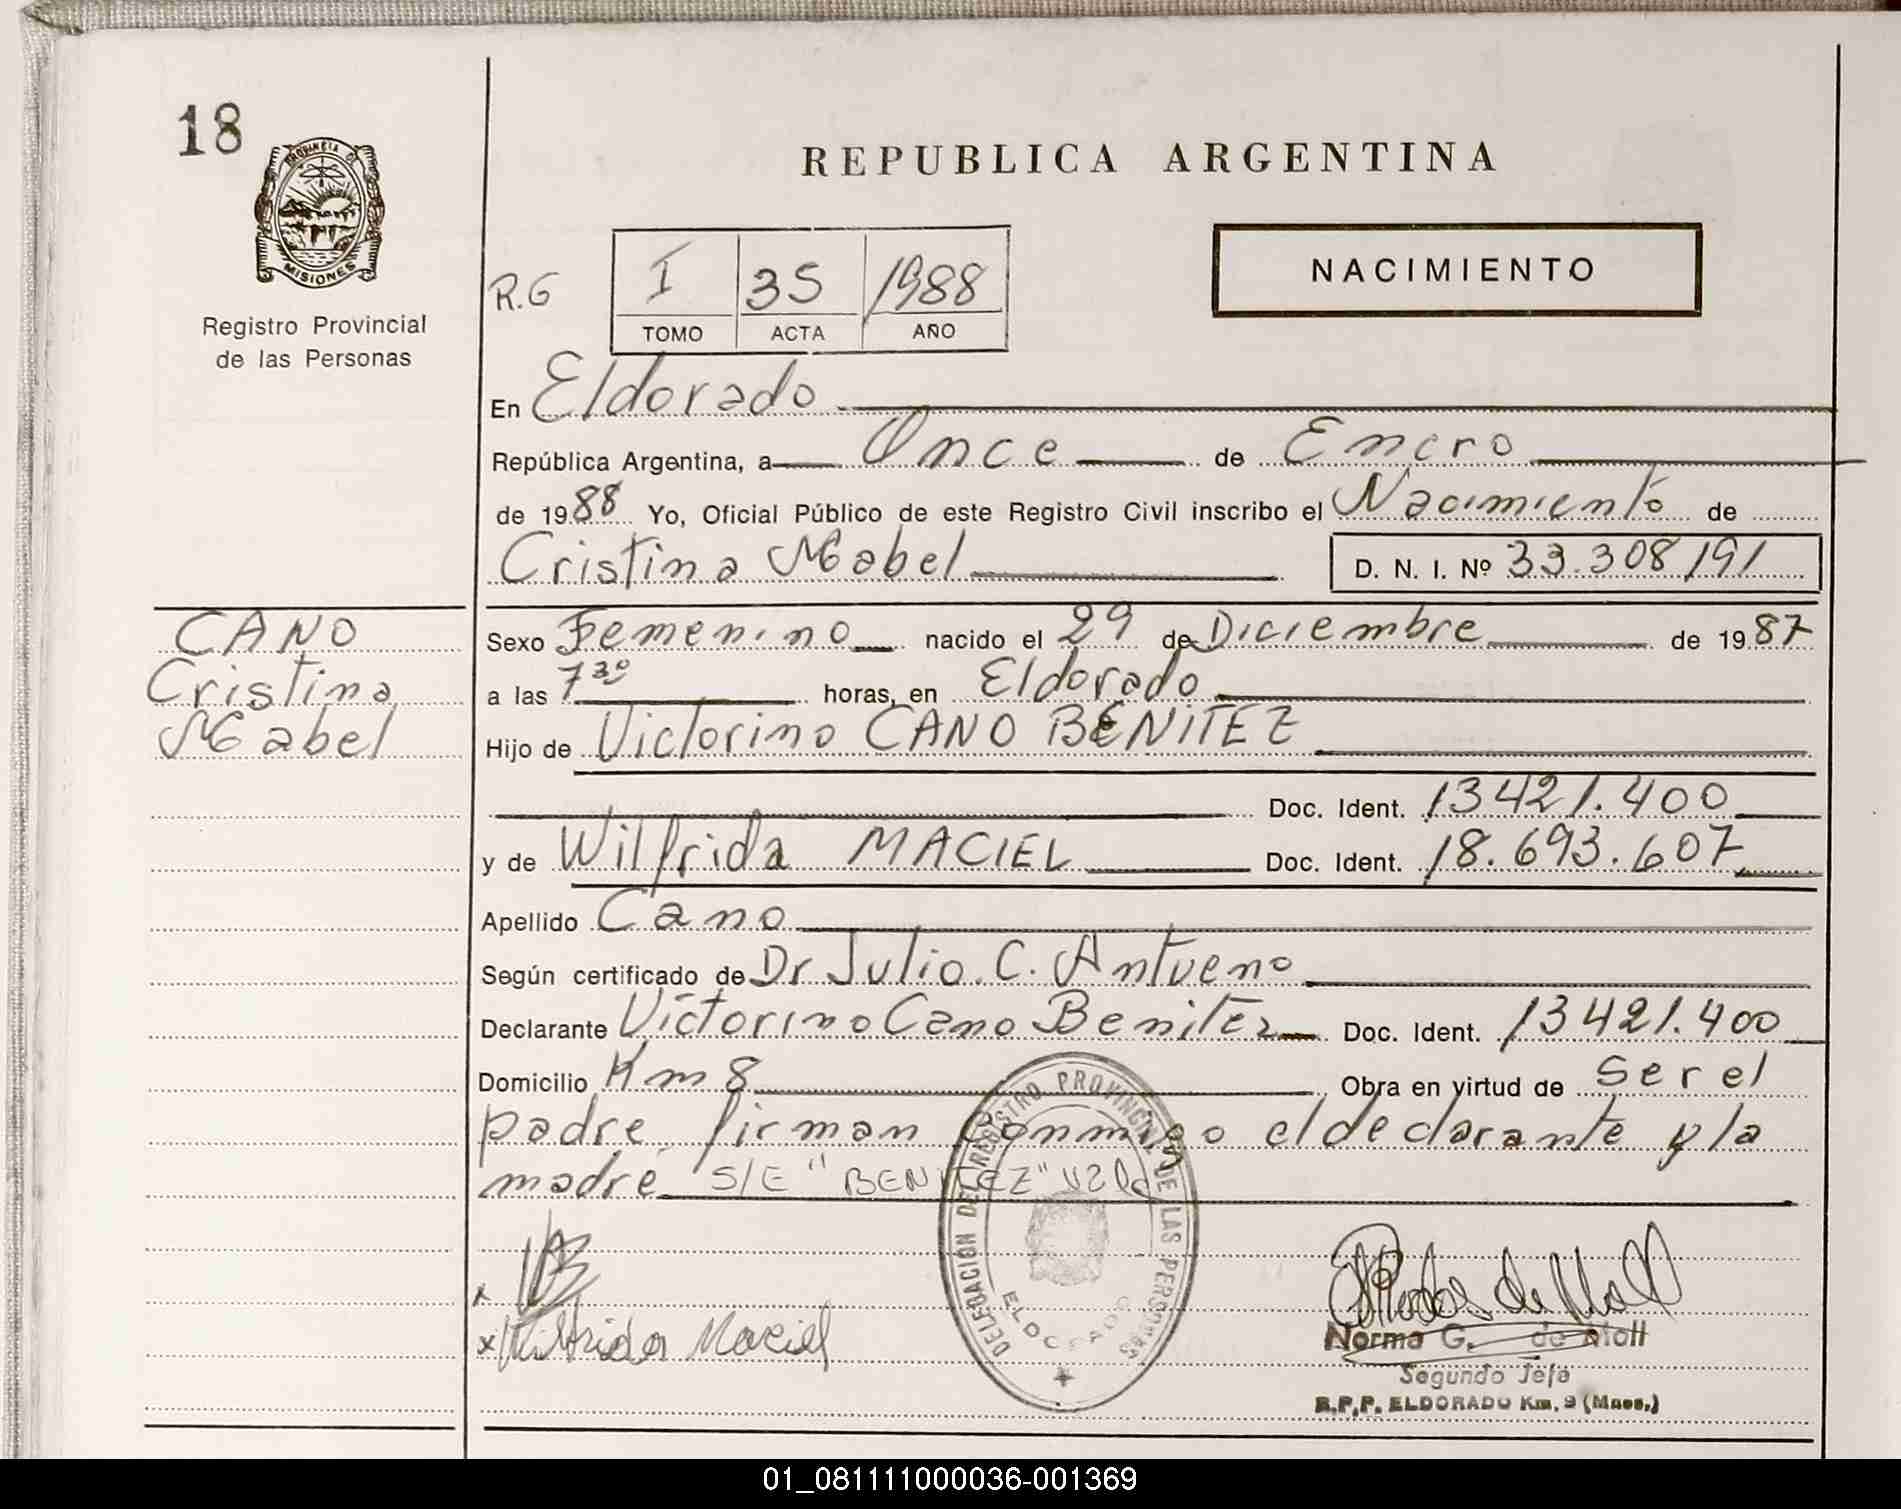 18
PROVINCIA DE
MISIONES
Registro Provincial
de las Personas
REPUBLICA ARGENTINA
NACIMIENTO
R.G I 35 1988
TOMO ACTA AÑO
En Eldorado
República Argentina, a Once de Enero
de 1988 Yo, Oficial Público de este Registro Civil inscribo el Nacimiento de
Cristina Mabel D. N. I. Nº 33.308191
CANO
Cristina
Mabel
Sexo Femenino nacido el 29 de Diciembre de 1987
a las 7 30 horas, en Eldorado
Hijo de Victorino CANO BENITEZ
Doc. Ident. 13421.400
y de Wilfrida MACIEL Doc. Ident. 18.693.607
Apellido Cano
Según certificado de Dr Julio. C. Antueno
Declarante Victorino Cano Benitez Doc. Ident. 13421.400
Domicilio Km 8 Obra en virtud de ser el
padre firman conmigo el declarante y la
madre S/E "BENITEZ" Vale
DELEGACION DEL REGISTRO PROVINCIAL DE LAS PERSONAS
ELDORADO
x
x Wilfrida Maciel
Norma G. de Moll
Segundo Jefe
R.P.P. ELDORADO Km. 9 (Mnes.)
01_081111000036-001369